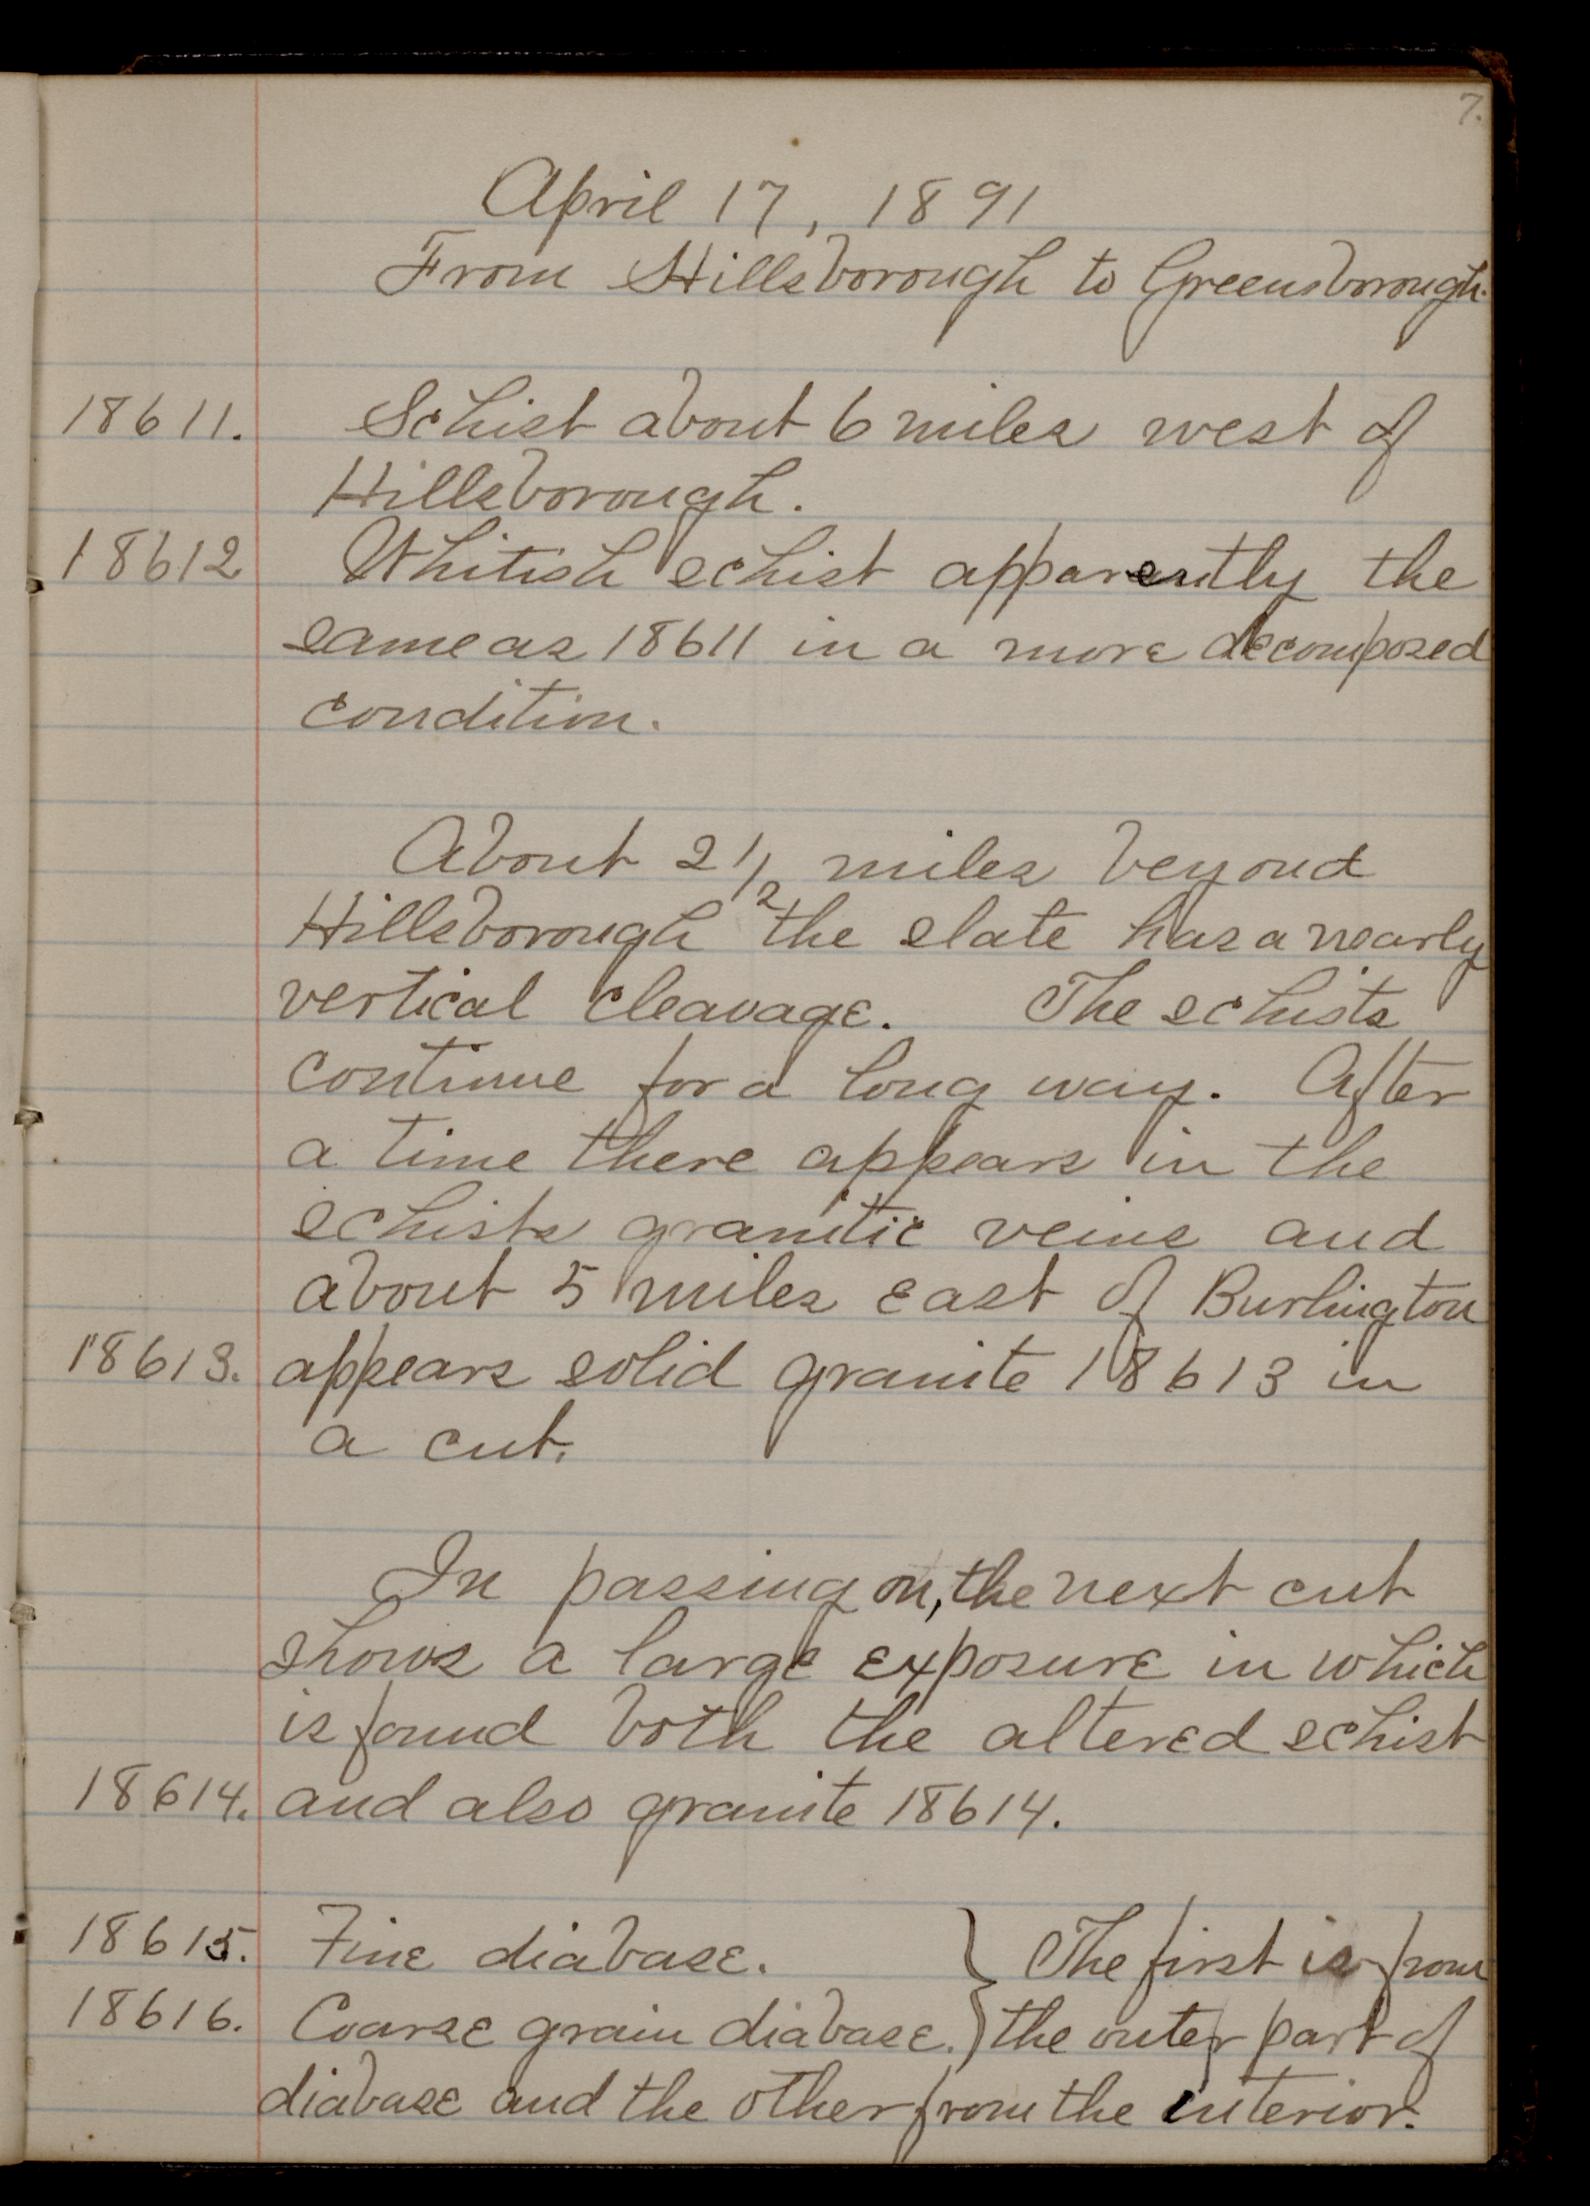 7.
April 17, 1891
From Hillsborough to Greensborough.
18611. Schist about 6 miles west of
Hillsborough.
18612 Whitish schist apparently the
same as 18611 in a more decomposed
condition.
About 2 1/2 miles beyond
Hillsborough the slate has a nearly
vertical cleavage. The schists
continue for a long way. After
a time there appears in the
schists granitic veins and
about 5 miles east of Burlington
18613. appears solid granite 18613 in
a cut.
In passing on, the next cut
shows a large exposure in which
is found both the altered schist
18614. and also granite 18614.
18615. Fine diabase. } The first is from
18616. Coarse grain diabase. } the outer part of
diabase and the other from the interior.